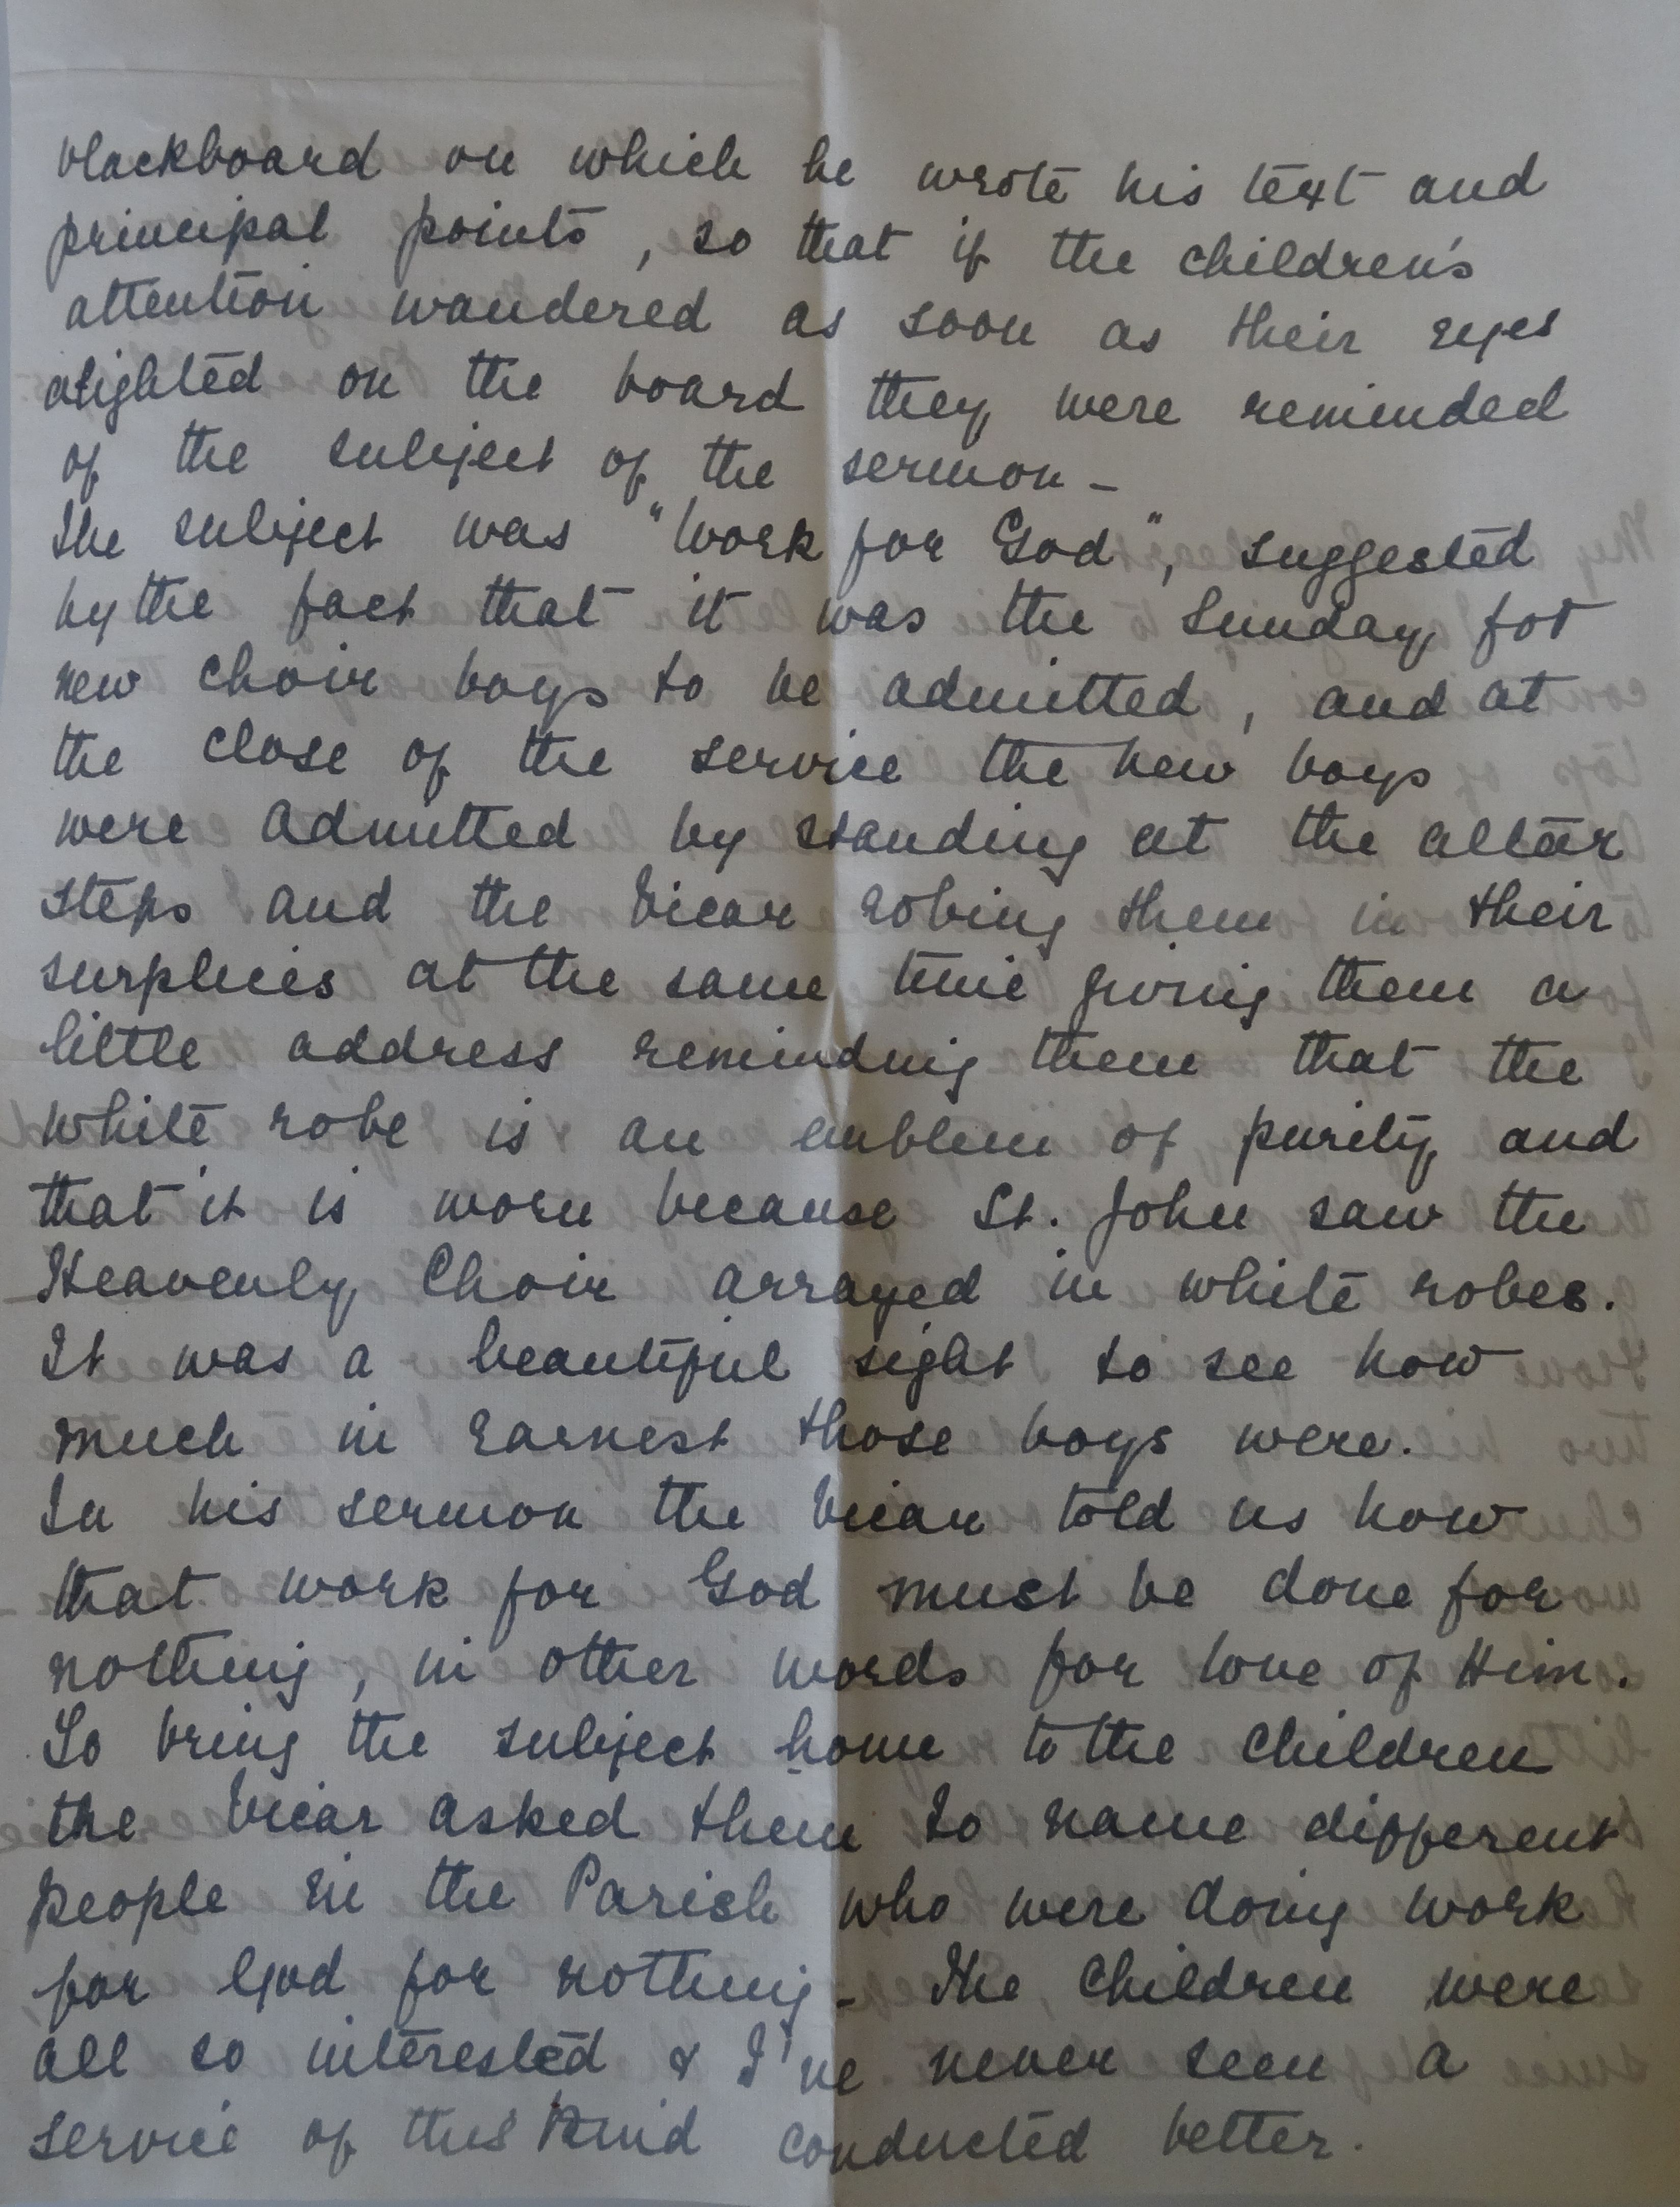 blackboard on which he wrote his text and
principal points, so that if the children's
attention wandered as soon as their eyes
alighted on the board they were reminded
of the subject of the sermon -
The subject was "Work for God", suggested
by the fact that it was the Sunday for
new choir boys to be admitted, and at
the close of the service the new boys
were admitted by standing at the altar
steps and the Vicar robing them in their
surplices at the same time giving them a
little address reminding them that the
white robe is an emblem of purity and
that it is worn because St. John saw the
Heavenly Choir arrayed in white robes.
It was a beautiful sight to see how
much in earnest those boys were.
In his sermon the Vicar told us how
that work for God must be done for
nothing, in other words for love of Him.
To bring the subject home to the children
the Vicar asked them to name different
people in the Parish who were doing work
for God for nothing - The children were
all so interested & I've never seen a
service of this kind conducted better.